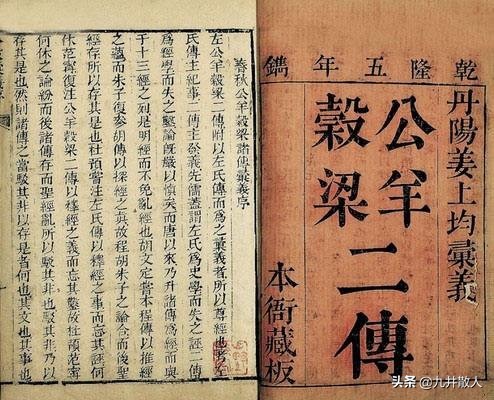 乾隆五年鐫
丹陽姜上均彚義
公羊
穀梁
二傳
本衙藏板
春秋公羊穀梁諸傳彚義序
左公羊穀梁二傳以左氏傳而爲之彚義者所以尊經也
左氏傳主紀事二傳主發義先儒蓋謂左氏爲史學而失之誣二傳
爲經學而失之鑿論旣嚴以慎矣而唐以來乃升諸傳爲經
于十三經之列是明經而不免亂經也胡文定嘗本程傳以推經
之蘊而朱子復參胡傳以探經之真故程胡朱子之論合而後聖
經存所以存其是也杜預嘗注左氏傳以釋經之事而忘其誣何
休范甯復注公羊穀梁二傳以釋經之義而忘其鑿故杜預范甯
何休之論紛而後諸傳存而聖經亂所以駁其非也駁其非以
存其是也然則諸傳之當駁其非以存是者何也其文也其事也
头条 @九井散人